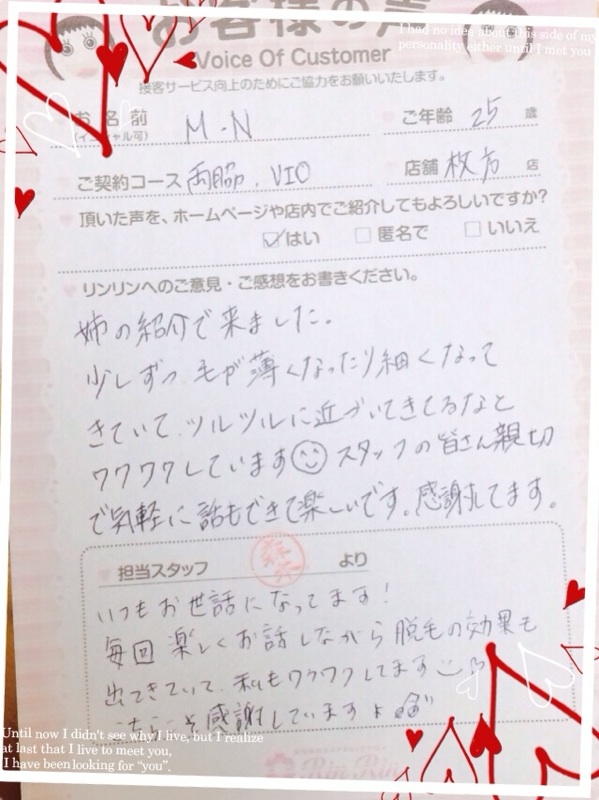 お客様の声
I had no idea about this side of my
personality either until I met you
Voice Of Customer
接客サービス向上のためにご協力をお願いいたします。
お名前
(イニシャル可)
M・N
ご年齢 25 歳
ご契約コース 両脇、VIO
店舗 枚方 店
頂いた声を、ホームページや店内でご紹介してもよろしいですか?
はい 匿名で いいえ
リンリンへのご意見・ご感想をお書きください。
姉の紹介で来ました。
少しずつ毛が薄くなったり細くなって
きていて、ツルツルに近づいてきてるなと
ワクワクしています スタッフの皆さん親切
で気軽に話もできて楽しいです。感謝してます。
担当スタッフ より
いつもお世話になってます!
毎回楽しくお話しながら脱毛の効果も
出てきていて、私もワクワクしてます
こちらこそ感謝しています
Until now I didn't see why I live, but I realize
at last that I live to meet you,
I have been looking for "you".
Rin Rin